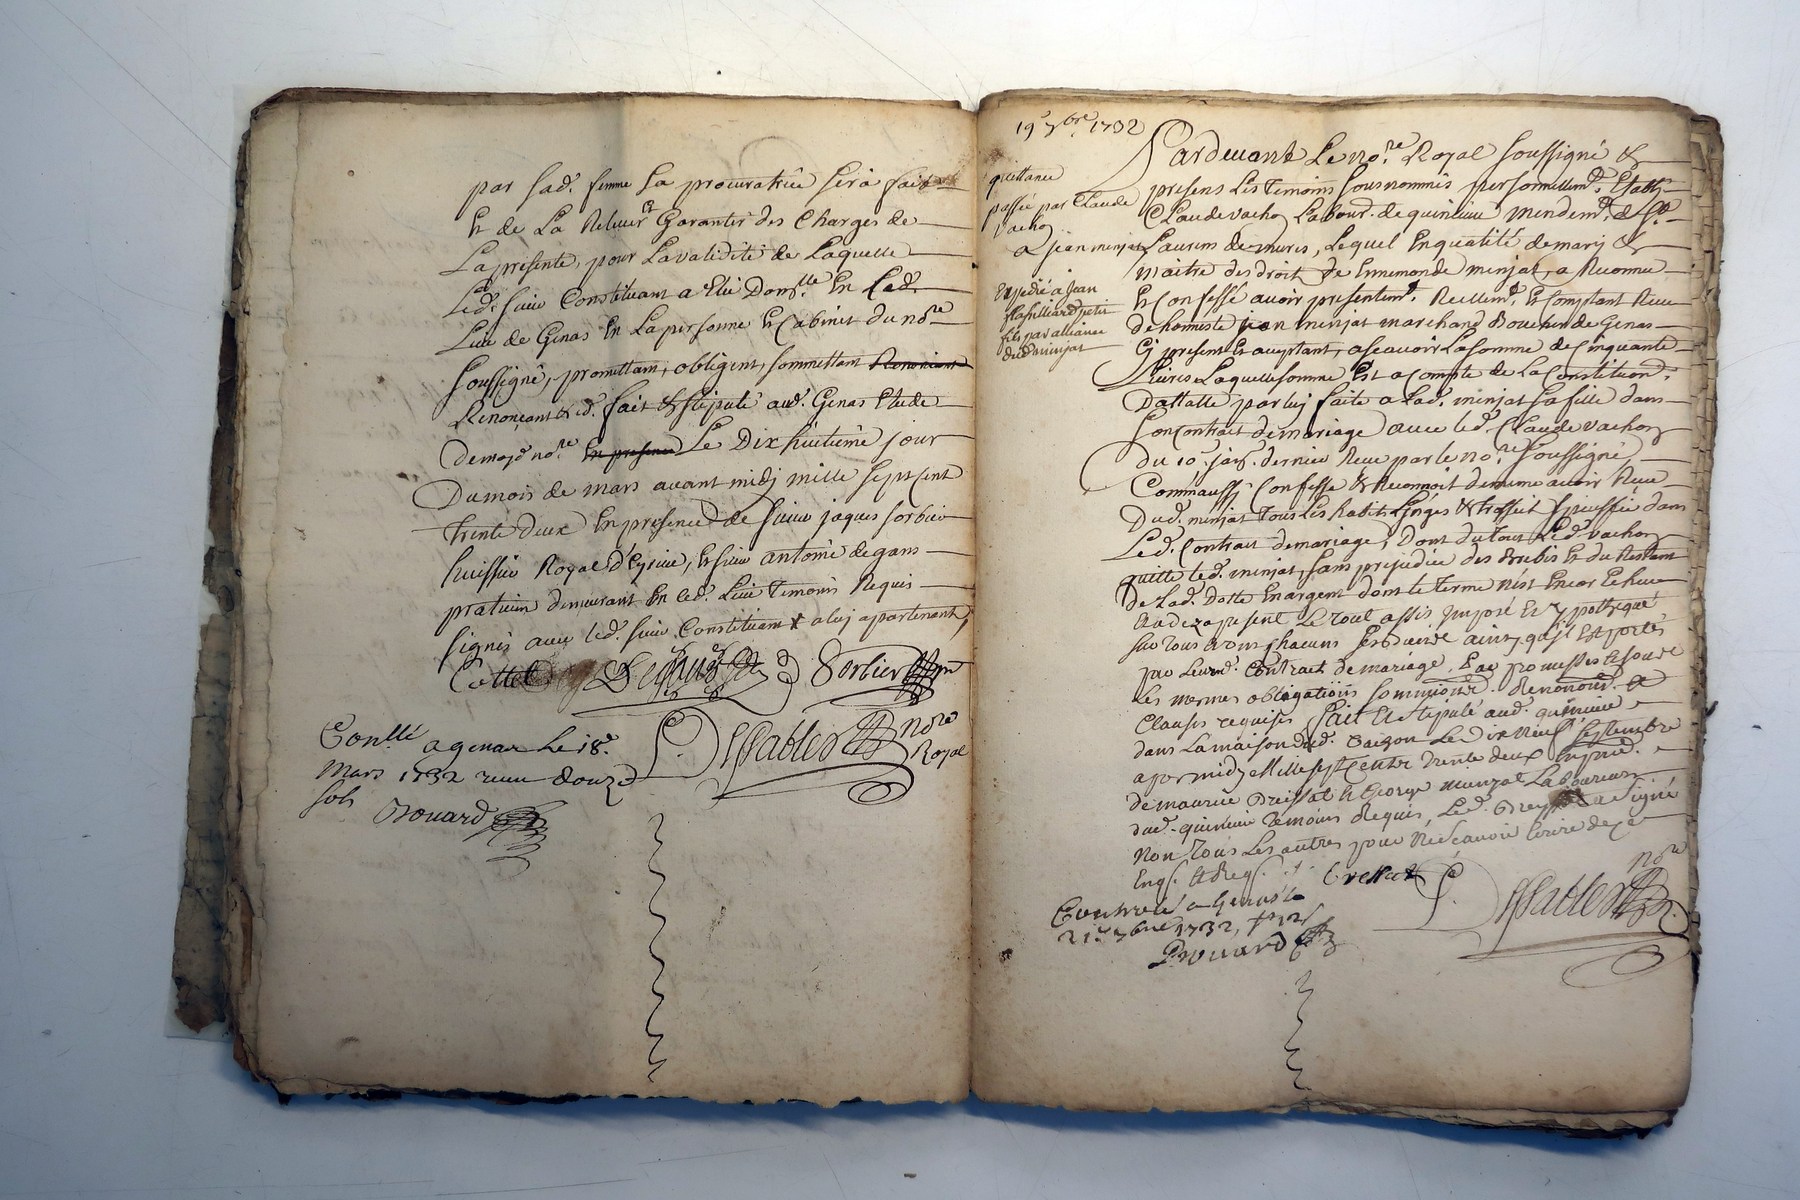 par sad. femme sa procuratrice sera fait
Et de La Relever Et Garantir des Charges de
La presente, pour La validité de Laquelle
Led. sieur Constituant a Elû Dom.lle En Led.
Lieu de Genas En La personne Et Cabinet du no.re
soussigné, promettant, obligent, sommettant Renoncant
Renonceant &cd. fait & stipulé aud. Genas Etude
De moyd no.re En presence Le Dix huitieme jour
Du mois de mars avant midy mille sept cent
trente deux En presence de sieur jaques sorbier
huissier Royal d'Eyrieu, Et sieur antoine degans
praticien demeurant En led. Lieu Temoins Requis
signés avec led. sieur Constituant a luy apartenant,
Cottel Degans Sorbier
Desables no.re
Royal
Con.llé a genas Le 18.e
Mars 1732 receu douze
sols
Bouard
19.e 7bre. 1732
quittance
passée par Claude
Vachon
a jean minjat
Expedié a jean
petit
fils par alliance
dud. minjat
Pardevant Le no.re Royal soussigné &
presens Les Temoins sousnommés personnellem.t Estably
Claude vachon Labour. de quincieu mendem.t de S.t
Laurens de mures, Lequel En qualité de mary &
maitre des droits de Ennemonde minjat, a Reconnu
Et Confessé avoir presentem.t Reellem.t Et Comptant Receu
de honneste jean minjat marchand Boucher de Genas
Cy present Et aceptant, a scavoir La somme de Cinquante
Livres Laquelle somme Est a Compte de La Constitution
Dattalle par luy faite a Lad. minjat sa fille dans
son Contrait de mariage avec led. Claude vachon
du 10.e janv. dernier Receu par le no.re soussigné,
Commaussy Confesse & Reconnoit de meme avoir Receu
Dud. minjat Tous Les habits Linges & trossel specifiés dans
Led. Contrait de mariage, Dont du tout Led. vachon
quitte led. minjat, sans prejudice des Brebis Et du Restant
de Lad. Dotte En argent dont le terme n'est Encor Echeu
Laude a present Le tout assis, Imposé Et ypothequé
sur tous Et un chacuns ses Biens ainsy qu'il Est porté
par Leurd. Contrait de mariage, Par promesses
Les mesmes obligations soumissions. Renonciond. &
Clauses requises fait Et stipulé aud. quincieu
dans La maison dud. Le Dix Neuf Septembre
apres midy Mille sept Cents trente deux En pred.
de maurice Breissat & George Munjat Laboureurs
dud. quincieu Temoins Requis, Led. Breyssat a Signé
Non Tous Les autres pour Ne scavoir Ecrire de ce
Enq. & Req. Bressat
Desables no.re
Controlé a Genas le
21.e 7bre 1732,
Bouard